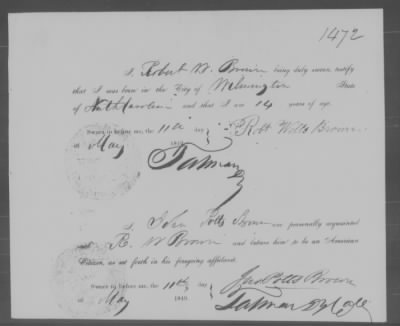 1472
I, Robert W. Brown being duly sworn, testify
that I was born in the City of Wilmington State
of North Carolina and that I am 14 years of age.
Robt Potts Brown
Sworn to before me, the 11th day
of May 1849
Tatman
I, John Potts Brown am personally acquainted
with R. W Brown and know him to be an American
Citizen, as set forth in his foregoing affidavit.
Jno Potts Brown
Sworn to before me, the 11th day
of May 1849.
Tatman